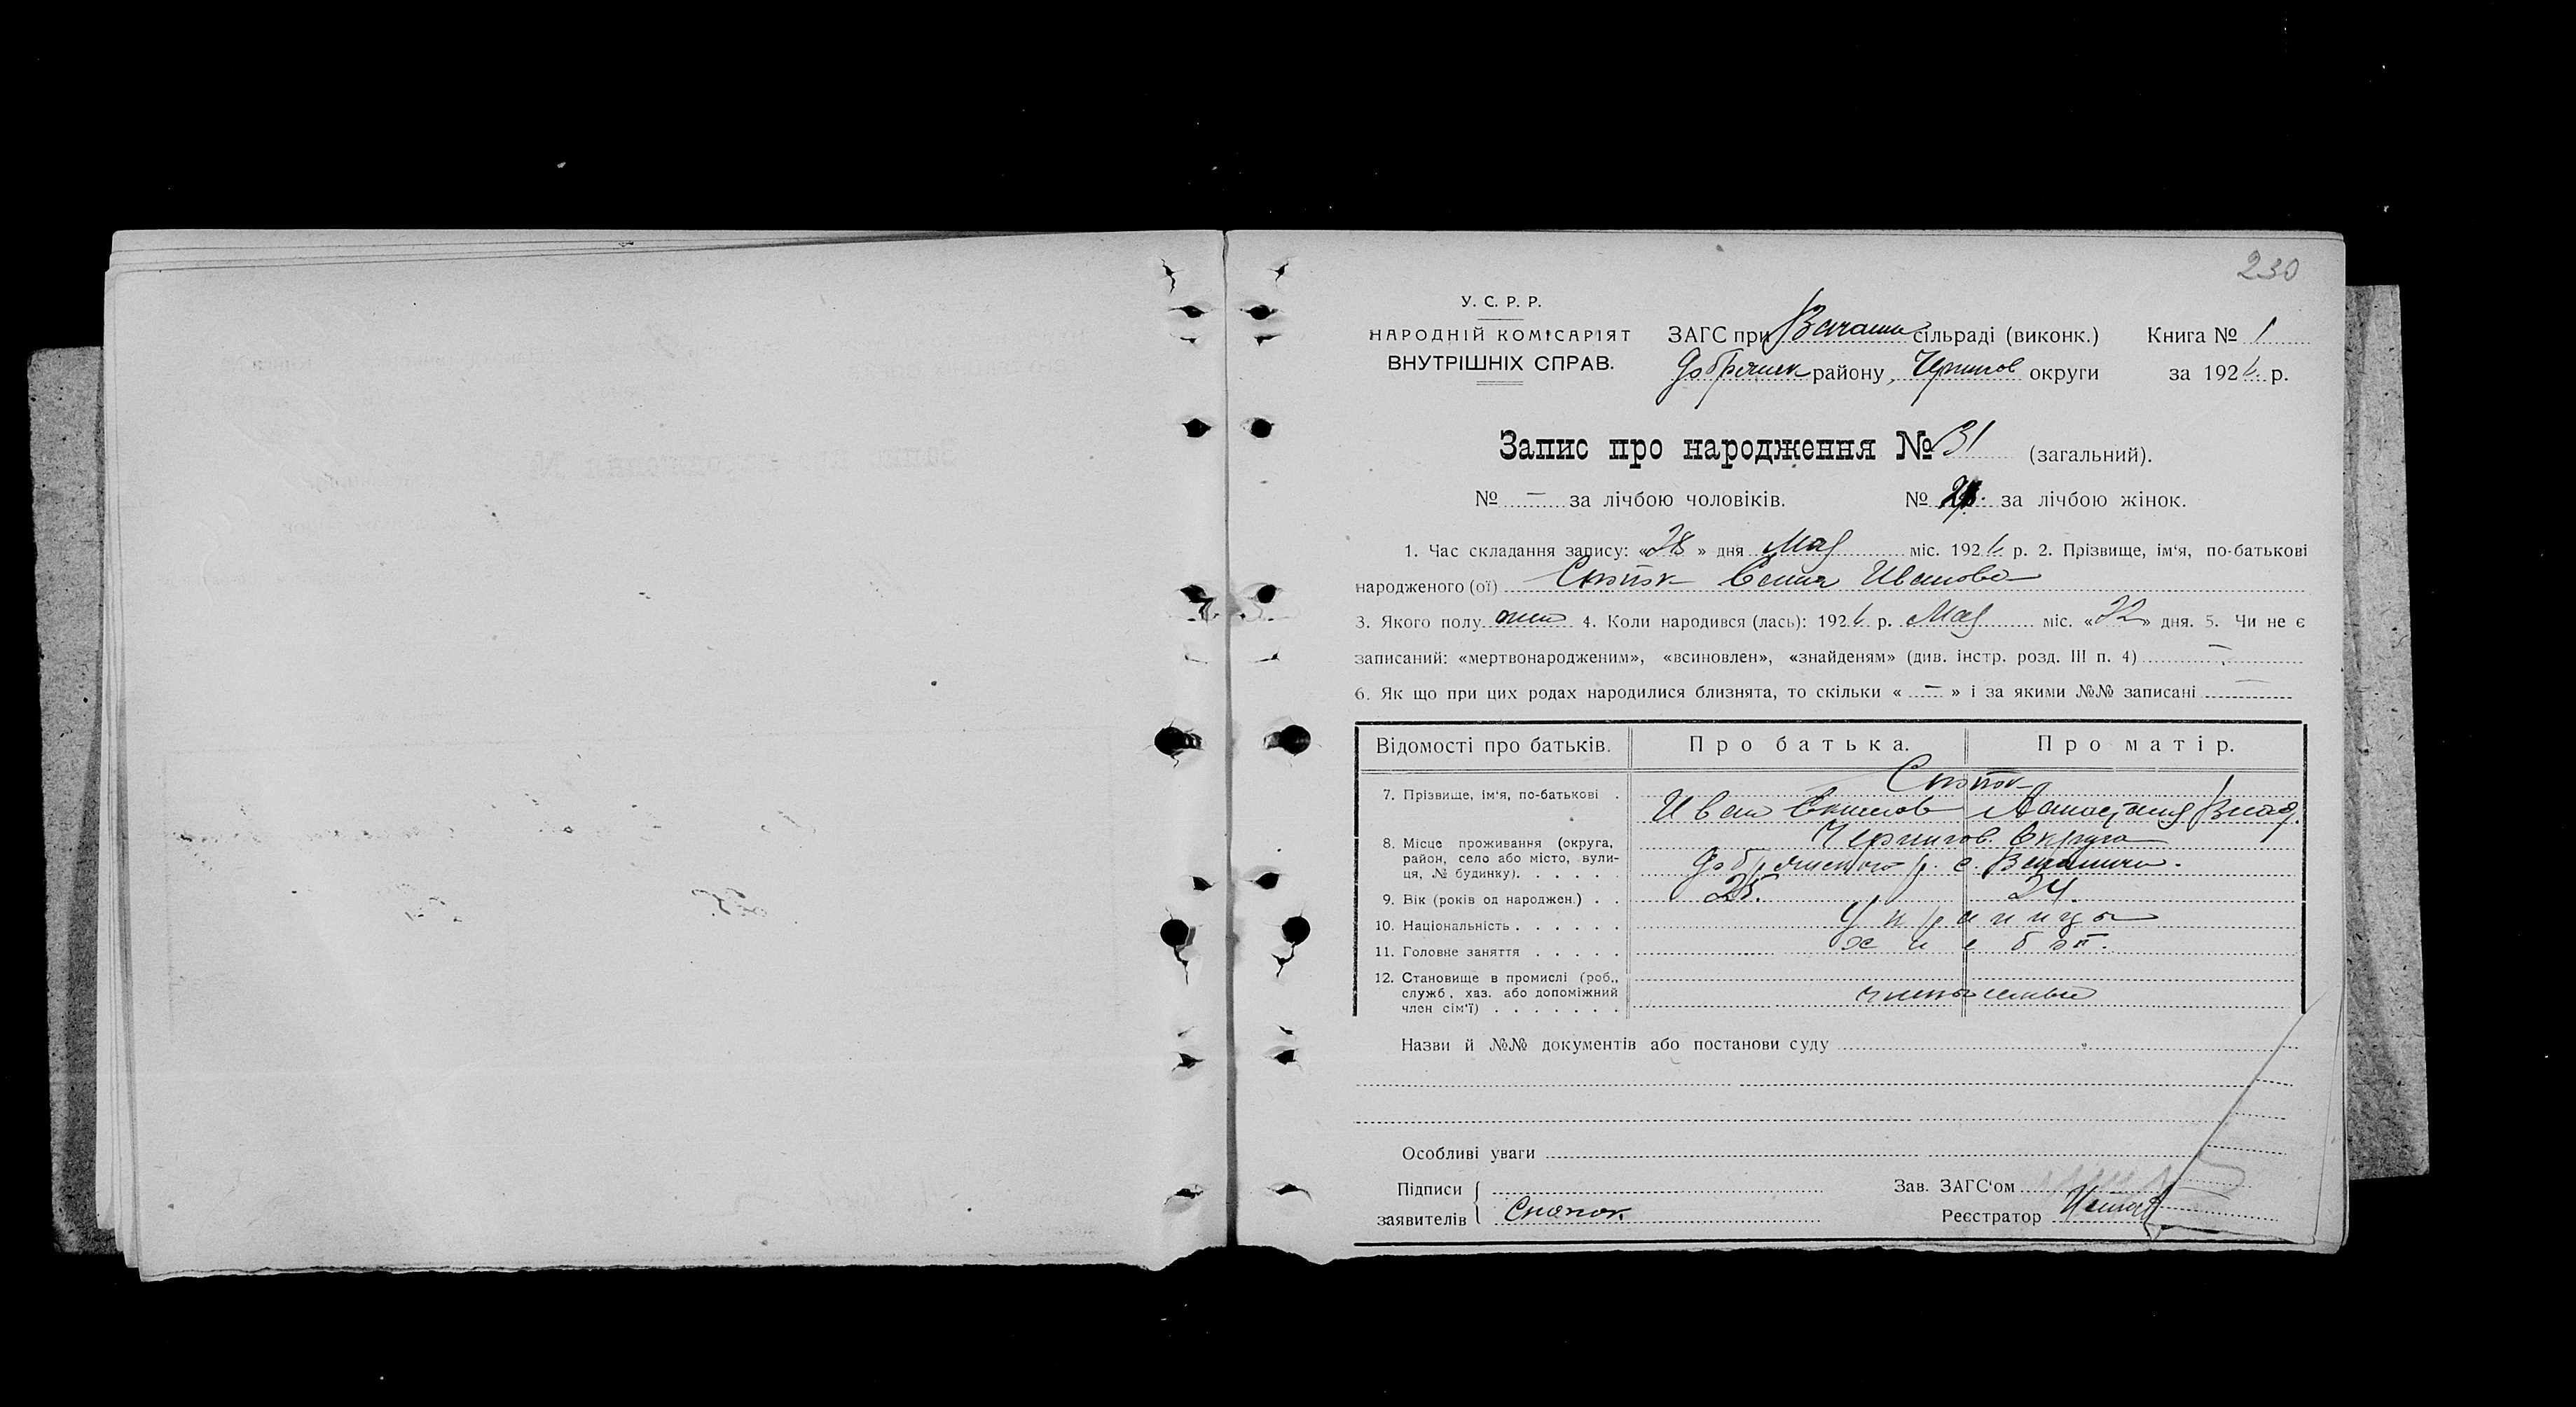 230
У. С. Р. Р.
НАРОДНІЙ КОМІСАРІЯТ
ВНУТРІШНІХ СПРАВ.
ЗАГС при сільраді (виконк.) Книга № 1
району, Чернигов округи за 192 р.
Запис про народження № 31 (загальний).
№ — за лічбою чоловіків. № за лічбою жінок.
1. Час складання запису: «28» дня Мая міс. 192 р. 2. Прізвище, ім‘я, по-батькові
народженого (ої) Ивановa
3. Якого полу жен 4. Коли народився (лась): 192 р. Мая міс. «22» дня. 5. Чи не є
записаний: «мертвонародженим», «всиновлен», «знайденям» (див. інстр. розд. III п. 4) —
6. Як що при цих родах народилися близнята, то скільки « — » і за якими №№ записані —
Відомості про батьків. Про батька. Про матір.
7. Прізвище, ім‘я, по-батькові .
Иван Анастасия Влад.
8. Місце проживання (округа, Чернигов. Округа
район, село або місто, вули-
ця, № будинку). . . . . . р. с.
9. Вік (років од народжен.) . . 25. 24.
10. Національність . . . . . . Украинцы
11. Головне заняття . . . . . хлебоп.
12. Становище в промислі (роб.,
служб, хаз. або допоміжний
член сім‘ї) . . . . . . . члены семьи
Назви й №№ документів або постанови суду
Особливі уваги
Підписи Зав. ЗАГС‘ом
заявителів Реєстратор